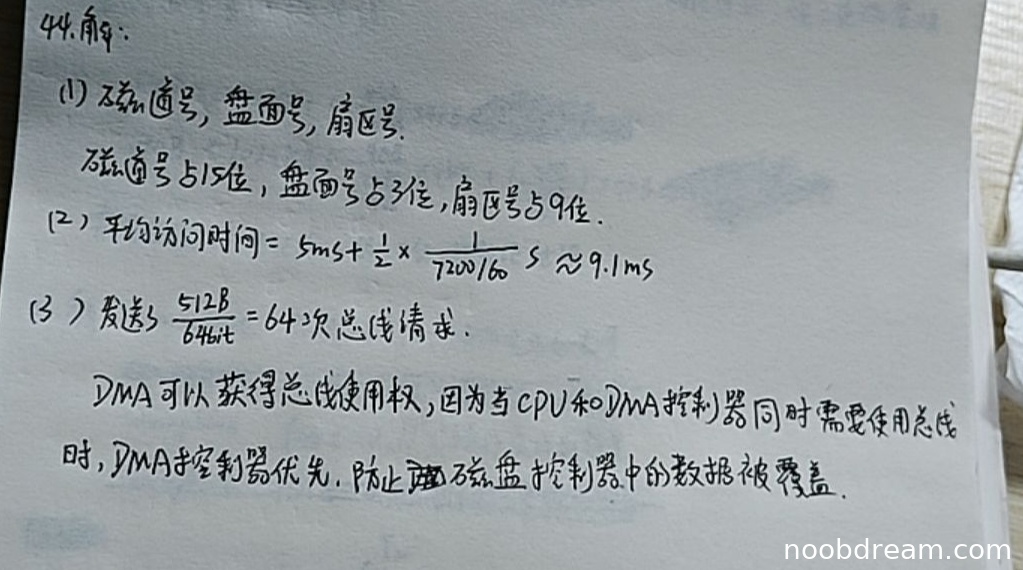 44.解:
(1) 磁道号, 盘面号, 扇区号.
磁道号占15位, 盘面号占3位, 扇区号占9位.
(2) 平均访问时间 = 5ms + 1/2 × 1/(7200/60) s ≈ 9.1ms
(3) 发送了 512B/64bit = 64次总线请求.
DMA可以获得总线使用权, 因为当CPU和DMA控制器同时需要使用总线
时, DMA控制器优先. 防止磁盘控制器中的数据被覆盖.
noobdream.com